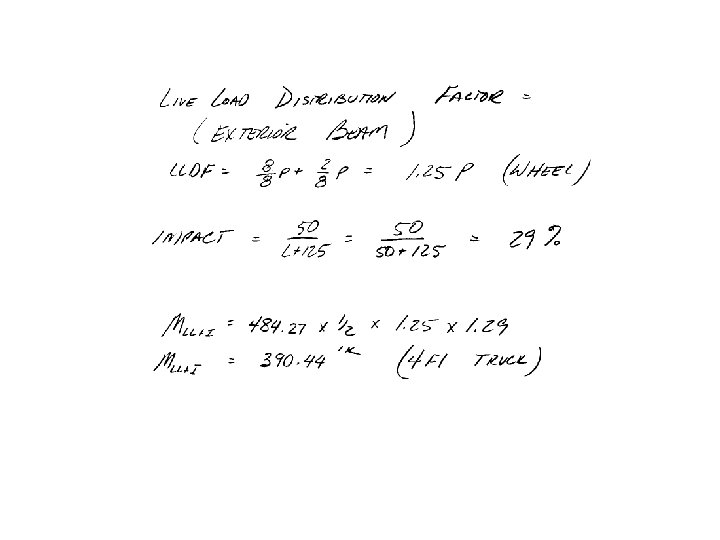 LIVE LOAD DISTRIBUTION FACTOR =
(EXTERIOR BEAM)
LLDF = 8/8 P + 2/8 P = 1.25 P (WHEEL)
IMPACT = 50/L+125 = 50/50+125 = 29%
MLL+I = 484.27 x 1/2 x 1.25 x 1.29
MLL+I = 390.44 'K (4F1 TRUCK)